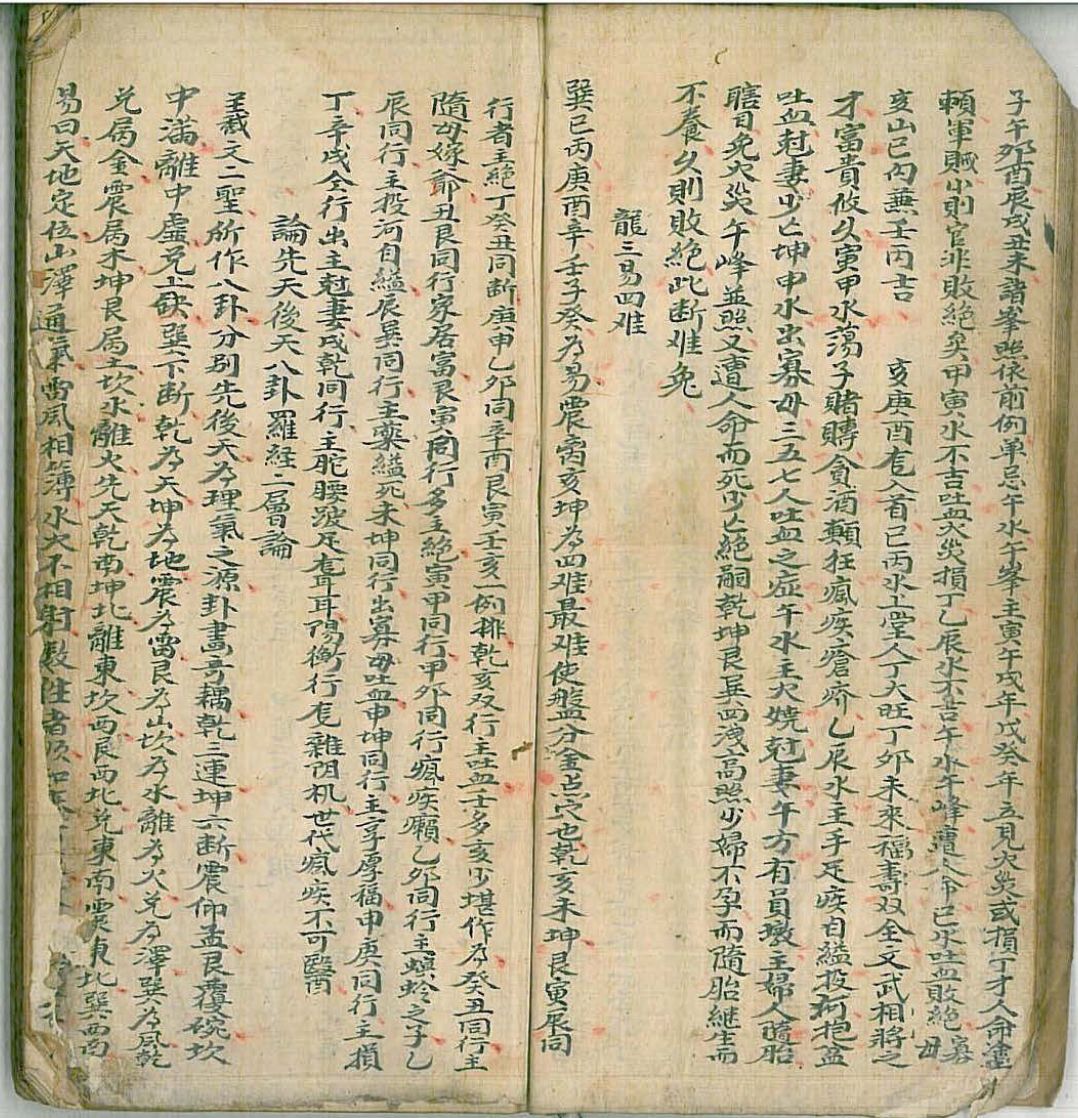 子午卯酉辰戌丑未諸峯照依前例单忌午水午峯主寅午戌年戊癸年五見火災或損丁才人命
頼軍賊小則官非敗絕矣甲寅水不吉吐血火災損丁乙辰水不吉午水午峰遭人命巳水吐血敗絕寡母
亥山巳向兼壬丙吉　亥庚酉龙入首巳丙水上堂人丁大旺丁卯未來福壽双全文武相將之
才富貴攸久寅甲水蕩子賭賻貪酒顛狂瘋疾瘡疥乙辰水主手足疾自縊投河抱盆
吐血尅妻少亡坤申水出寡母二五七人吐血之症午水主火燒尅妻午方有員墩主婦人隨胎
瞎目免火災午峰並照又遭人命而死少亡絕嗣乾坤艮巽四洩高照少婦不孕而隨胎継生而
不養久則敗絕此断难免
龍三易四难
巽巳丙庚酉辛壬子癸為易震离亥坤為四难最难使盤分金点穴也乾亥未坤艮寅辰同
行者主絕丁癸丑同断庚申乙卯同辛酉艮寅壬亥一例排乾亥双行主吐血壬多亥少堪作為癸丑同行主
隨母嫁爺丑艮同行家居富艮寅同行多主絕寅甲同行甲卯同行瘋疾癩乙卯同行主螟蛉之子乙
辰同行主投河自縊辰巽同行主藥縊死未坤同行出寡母吐血申坤同行主享厚福申庚同行主損
丁辛戌仝行出主尅妻戌乾同行主駝腰跛足龙耳耳陽衡行龙雜胡机世代瘋疾不可醫
論先天後天八卦羅経二層論
王羲文二聖所作八卦分别先後天為理氣之源卦畫奇耦乾三連坤六断震仰盂艮覆碗坎
中滿離中虛兌上缺巽下断乾為天坤為地震為雷艮為山坎為水離為火兌為澤巽為風乾
兌属金震属木坤艮属土坎水離火先天乾南坤北離東坎西艮西北兌東南震東北巽西南
易曰天地定位山澤通氣雷風相薄水火不相射數往者